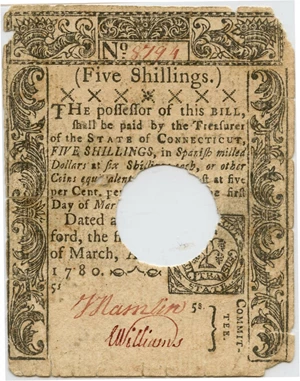 No. 8794
(Five Shillings.)
THE possessor of this BILL,
shall be paid by the Treasurer
of the STATE of CONNECTICUT,
FIVE SHILLINGS, in Spanish milled
Dollars at six Shillings each, or other
Coins equivalent st at five
per Cent. per he first
Day of Mar
Dated a
ford, the f
of March, A
1780.
5s
5s.
Williams
COMMIT-
TEE.